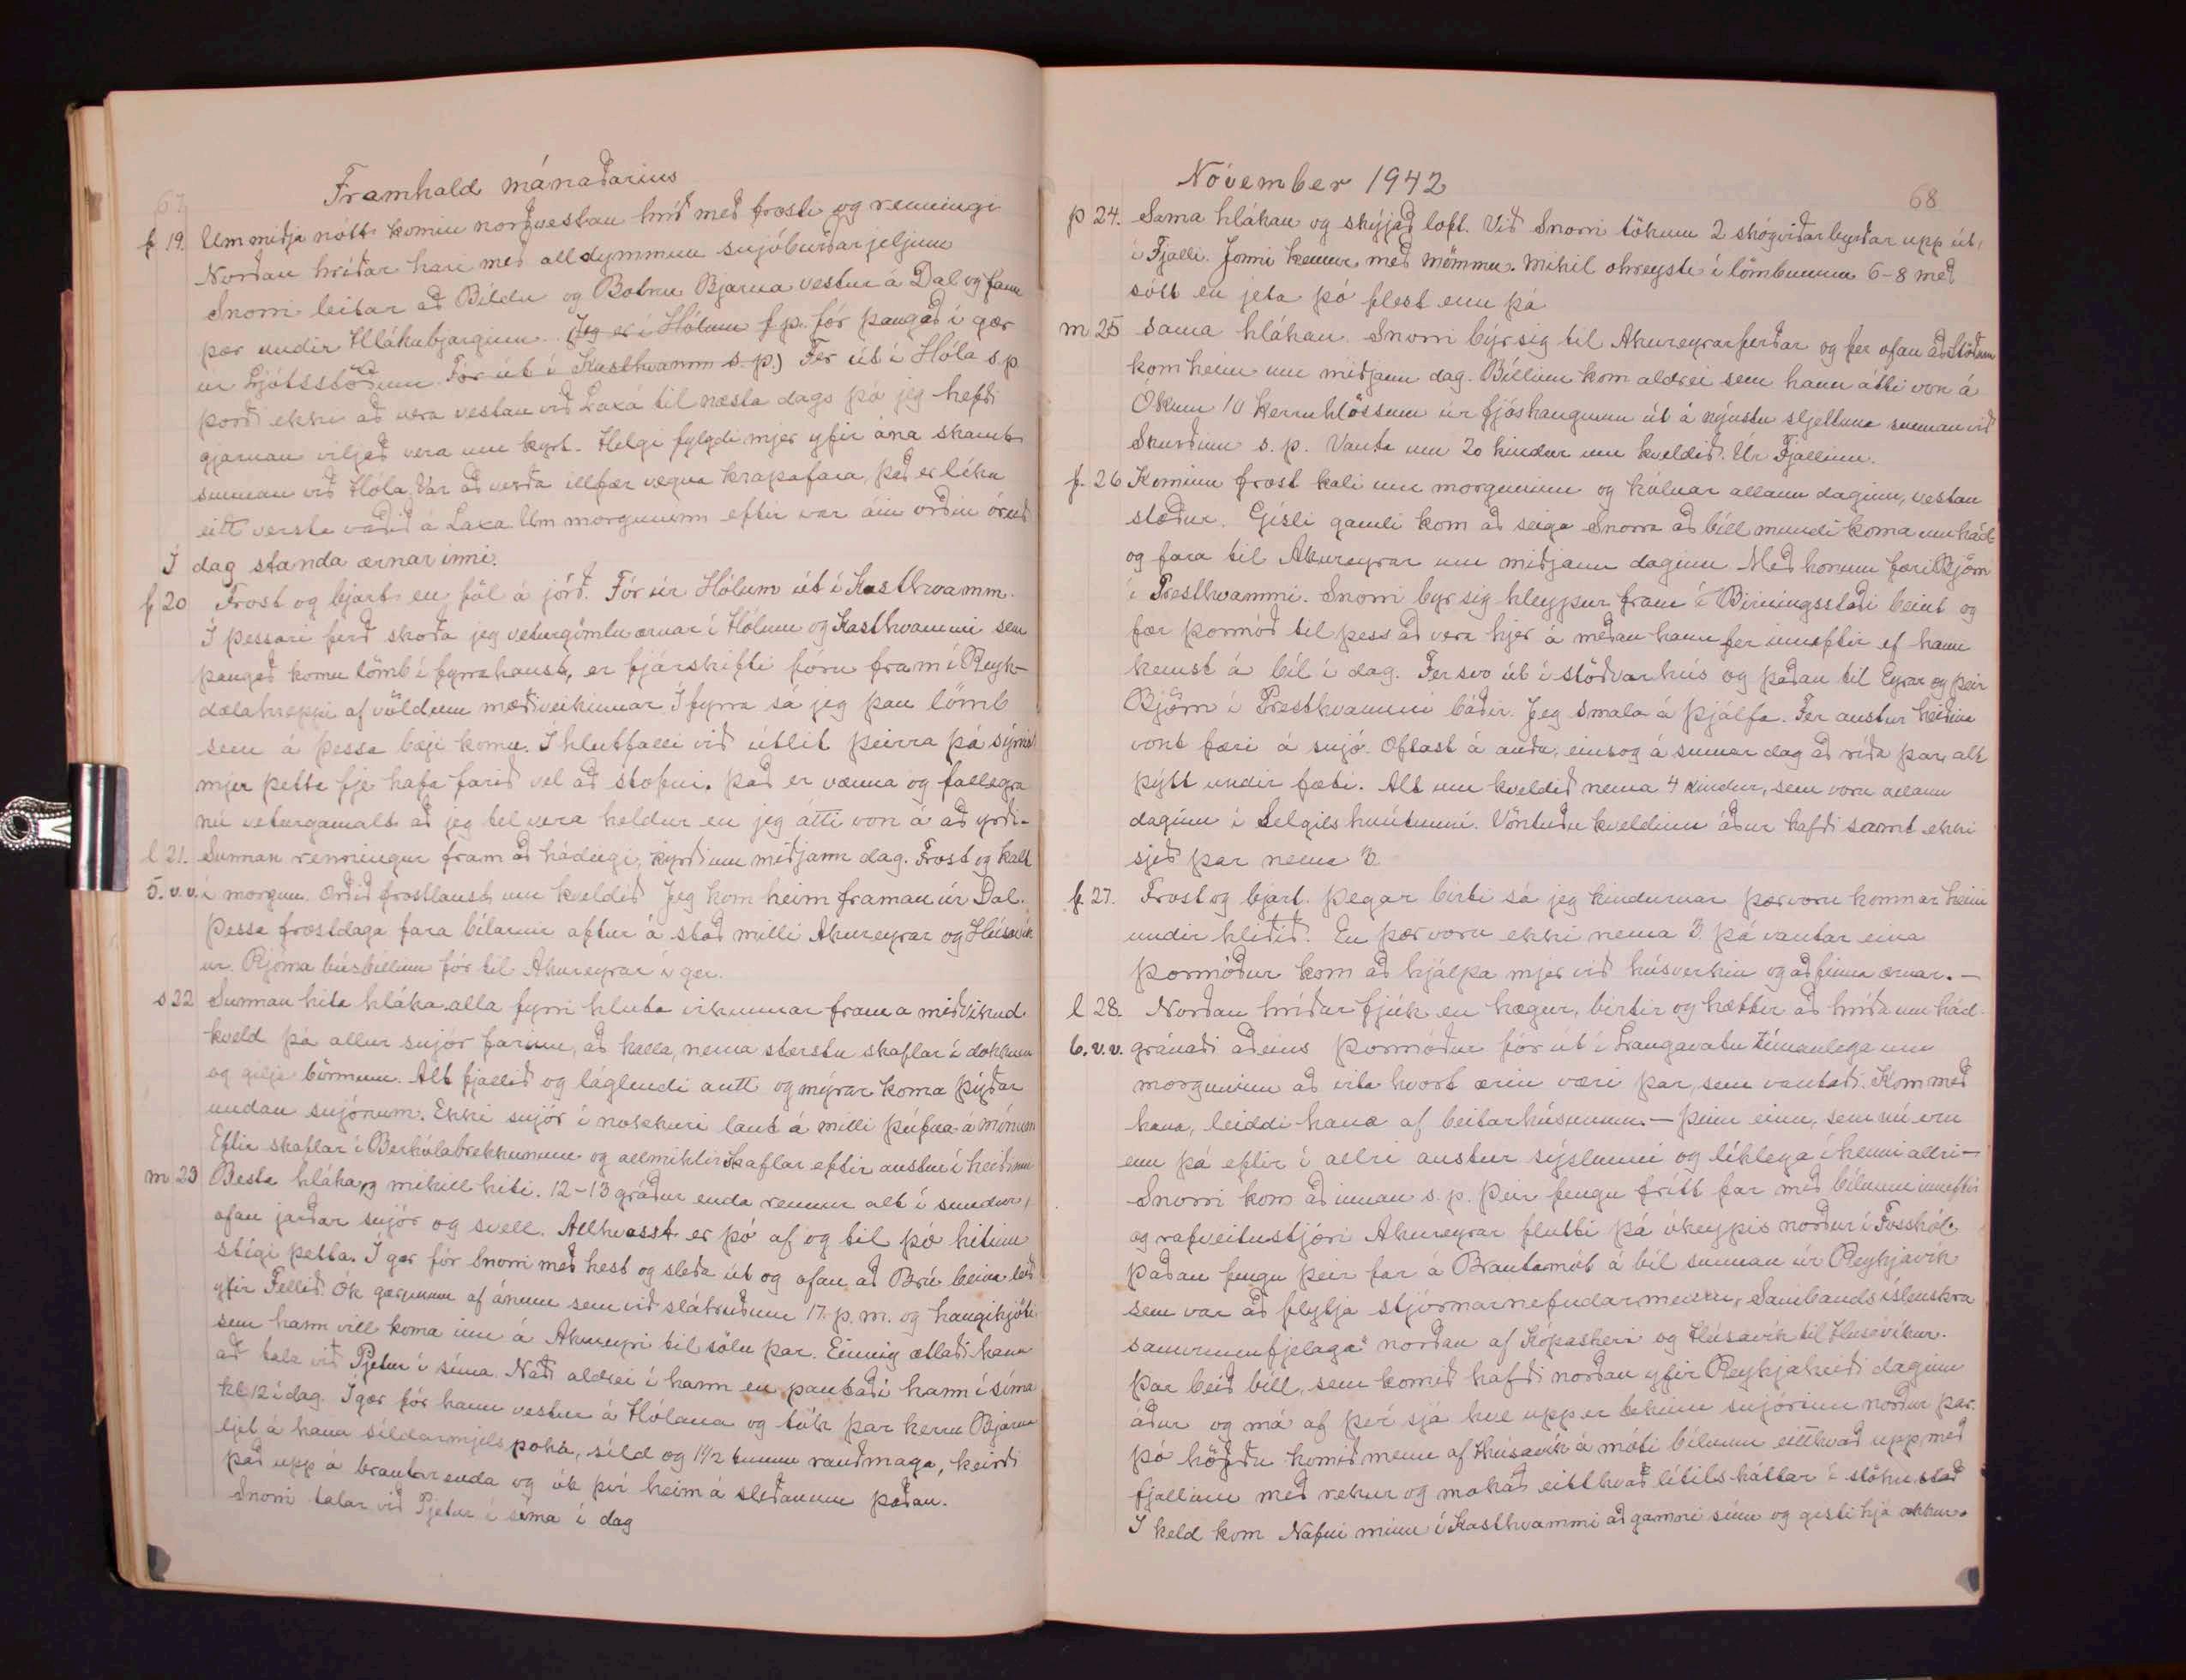 67
Framhald mánaðarins
f 19. Um miðja nótt komin norðvestan hríð með frosti og renningi
Norðan hríðar hari með alldymmum snjóburðarjeljum
Snorri leitar að Bíldu og Botnu Bjarna vestur á Dal og fann
þær undir Hlákubjarginu. (Jeg er í Hólum f.p. fór þangað í gær
úr Ljótsstöðum. Fór út í Kasthvamm s.p.) Fer út í Hóla s.p
þorði ekki að vera vestan við Laxá til næsta dags þó jeg hefði
gjarnan viljað vera um kyrt. Helgi fylgdi mjer yfir ána skamt
sunnan við Hóla. Var að verða illfær vegna krapafara, það er líka
eitt versta vaðið á Laxá Um morguninn eftir var áin orðin óreið
Í dag standa ærnar inni.
f 20 Frost og bjart en föl á jörð. Fór úr Hólum út í Kasthvamm.
Í þessari ferð skoða jeg veturgömlu ærnar í Hólum og Kasthvammi sem
þangað komu lömb í fyrrahaust, er fjárskifti fóru fram í Reyk-
dælahreppi af völdum mæðiveikinnar. Í fyrra sá jeg þau lömb
sem á þessa bæji komu. Í hlutfalli við útlit þeirra þá sýnist
mjer þetta fje hafa farið vel að stofni. Það er vænna og fallegra
nú veturgamalt að jeg tel vera heldur en jeg átti von á að yrði-
l 21. Sunnan renningur fram að hádegi, kyrði um miðjann dag. Frost og kalt
5. v.v. í morgun. Orðið frostlaust um kveldið Jeg kom heim framan úr Dal.
Þessa frostdaga fara bílarnir aftur á stað milli Akureyrar og Húsavík
ur. Rjóma búsbíllinn fór til Akureyrar í gær.
s 22 Sunnan hita hláka alla fyrri hluta vikunnar fram a miðvikud
kveld þá allur snjór farinn, að kalla, nema stærstu skaflar í dokkum
og gilja börmum. Alt fjallið og láglendi autt og mýrar koma þýðar
undan snjónum. Ekki snjór í nokkuri laut á milli þúfna á mónum
Eftir skaflar í Berhólabrekkunum og allmiklir skaflar eftir austur í heiðinni
m 23 Besta hláka og mikill hiti. 12-13 gráður enda rennur alt í sundur,
ofan jarðar snjór og svell. Allhvasst er þó af og til þó hitinn
stígi þetta. Í gær fór Snorri með hest og sleða út og ofan að Brú beina leið
yfir Fellið. Ók gærunum af ánum sem við slátruðum 17. þ.m. og hangikjöti
sem hann vill koma inn á Akureyri til sölu þar. Einnig ætlaði hann
að tala við Pjetur í síma. Náði aldrei í hann en pantaði hann í síma
kl 12 í dag. Í gær fór hann vestur á Hólana og tók þar kerru Bjarna
ljet á hana síldarmjelspoka, síld og 1 1/2 tunnu rauðmaga, keirði
það upp á brautarenda og ók því heim á sleðanum þaðan.
Snorri talar við Pjetur í síma í dag
Nóvember 1942
68
þ 24. Sama hlákan og skýjað loft. Við Snorri tökum 2 skógviðarbyrðar upp út,
í Fjalli. Jonni kemur með mömmu. Mikil ohreysti í lömbunum 6-8 með
sótt en jeta þó flest enn þá
m 25 Sama hlákan. Snorri býr sig til Akureyrarferðar og fer ofan að Stöðum
kom heim um miðjann dag. Bíllinn kom aldrei sem hann átti von á
Ókum 10 kerruhlössum úr fjóshaugnum út á nýustu sljettuna sunnan við
Skurðinn s.p. Vanta um 20 kindur um kveldið. Úr Fjallinu.
f. 26 Kominn frost kali um morguninn og kólnar allann daginn, vestan
stæður. Gísli gamli kom að seiga Snorra að bíll mundi koma um hád
og fara til Akureyrar um miðjann daginn Með honum færi Björn
í Presthvammi. Snorri byr sig hleypur fram í Birningsstaði beint og
fær Þormóð til þess að vera hjer á meðan hann fer inneftir ef hann
kemst á bíl í dag. Fer svo út í stöðvarhús og þaðan til Eyrar og þeir
Björn í Presthvammi báðir. Jeg smala á Þjálfa. Fer austur heiðina
vont færi á snjó. Oftast á auðu, einsog á sumar dag að ríða þar, alt
þýtt undir fæti. Alt um kveldið nema 4 kindur, sem voru allann
daginn í Selgilshnútunni. Vöntuðu kveldinu áður hafði samt ekki
sjeð þar nema 3.
f. 27. Frost og bjart. Þegar birti sá jeg kindurnar þær voru komnar heim
undir hliðið. En þær voru ekki nema 3 þá vantar eina
Þormóður kom að hjálpa mjer við húsverkin og að finna ærnar. –
l 28. Norðan hríðar fjúk en hægur, birtir og hættir að hríða um hád-
6. v.v. gránaði aðeins Þormóður fór út í Langavatn tímanlega um
morguninn að vita hvort ærin væri þar, sem vantaði. Kom með
hana, leiddi hana af beitarhúsunum. – Þeim einu, sem nú eru
enn þá eftir í allri austur sýslunni og líklega í henni allri –
Snorri kom að innan s.p. Þeir fengu frítt far með bílnum inneftir
og rafveitustjóri Akureyrar flutti þá ókeypis norður í Fosshól,
þaðan fengu þeir far á Brautamót á bíl sunnan úr Reykjavík
sem var að flytja stjórnarnefndarmenn, Sambands íslenskra
samvinnufjelaga" norðan af Kópaskeri og Húsavík til Húsavíkur.
Þar beið bíll, sem komið hafði norðan yfir Reykjaheiði daginn
áður og má af því sjá hve upp er tekinn snjórinn norður þar.
Þó höfðu komið menn af Húsavík á móti bílnum eitthvað upp með
fjallinu með rekur og mokað eitthvað lítils háttar í stöku stað
Í keld kom Nafni minn í Kasthvammi að gamni sínu og gisti hjá okkur.